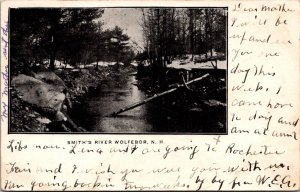 Dear Ma.
I'll be
up and
see you
one
day this
week. I
came home
to day
and am
all
SMITH'S RIVER WOLFEBORO, N. H.
now. Lena and I are going to Rochester
Fair and I wish you were with us.
I am going back in two weeks by by from W.E.C.
my Mother sent